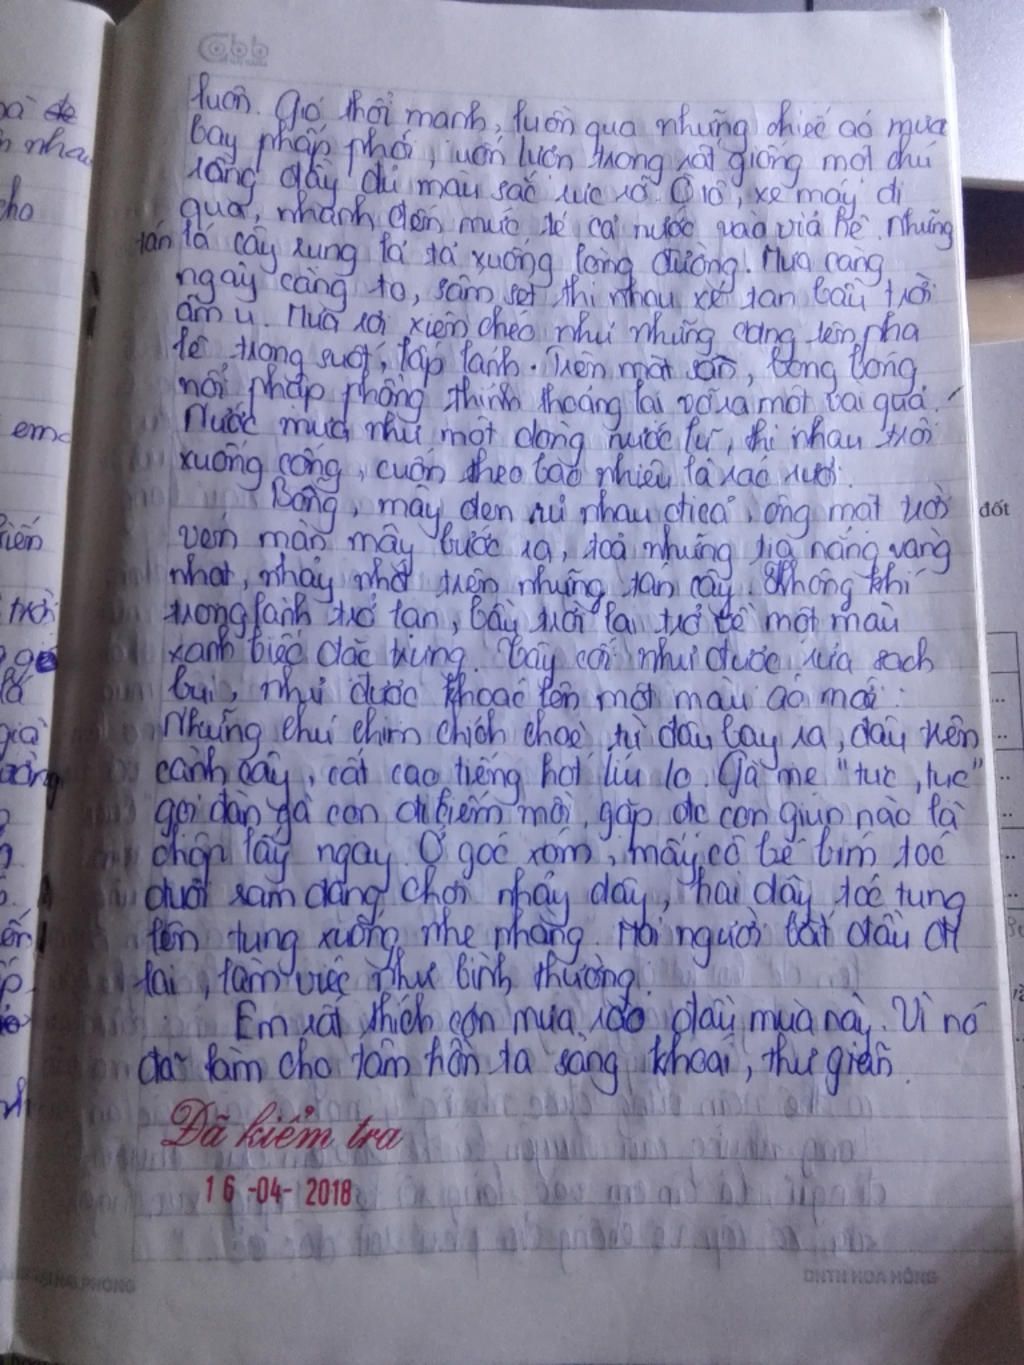 Cobb
luôn. Gió thổi mạnh, luồn qua những chiếc áo mưa
bay phấp phới, uốn lượn trong rất giống một chú
rồng đầy đủ màu sắc rực rỡ. Ô tô, xe máy đi
qua, nhanh đến mức té cả nước vào vỉa hè. Những
tán lá cây rung lá tả xuống lòng đường. Mưa càng
ngày càng to, sấm sét thi nhau xé tan bầu trời
âm u. Mưa rơi xiên chéo như những
lê trong suốt, lấp lánh. Trên mặt sân, bong bóng
nổi phập phồng thỉnh thoảng lại vỡ ra một vài quả.
Nước mưa như một dòng nước lũ, thi nhau trôi
xuống cống, cuốn theo bao nhiêu là rác rưởi.
Bỗng, mây đen rủ nhau đi, ông mặt trời
vén màn mây bước ra, toả những tia nắng vàng
nhạt, nhảy nhót trên những tán cây. Không khí
trong lành trở lan, bầu trời lại trở về một màu
xanh biếc đặc trưng. Cây cối như được rửa sạch
bụi, như được khoác lên một màu áo mới.
Những chú chim chích choè từ đâu bay ra, đậu trên
cành cây, cất cao tiếng hót líu lo. Gà mẹ "tục, tục"
gọi đàn gà con đi kiếm mồi, gặp đc con giun nào là
chộp lấy ngay. Ở góc xóm, mấy cô bé bím tóc
đuôi sam đang chơi nhảy dây, hai dây tóc tung
lên tung xuống nhẹ nhàng. Mọi người bắt đầu đi
lại, làm việc như bình thường.
Em rất thích cơn mưa rào đầu mùa này. Vì nó
đã làm cho tâm hồn ta sảng khoái, thư giãn.
Đã kiểm tra
16-04-2018
DNTN HOA HỒNG
đốt